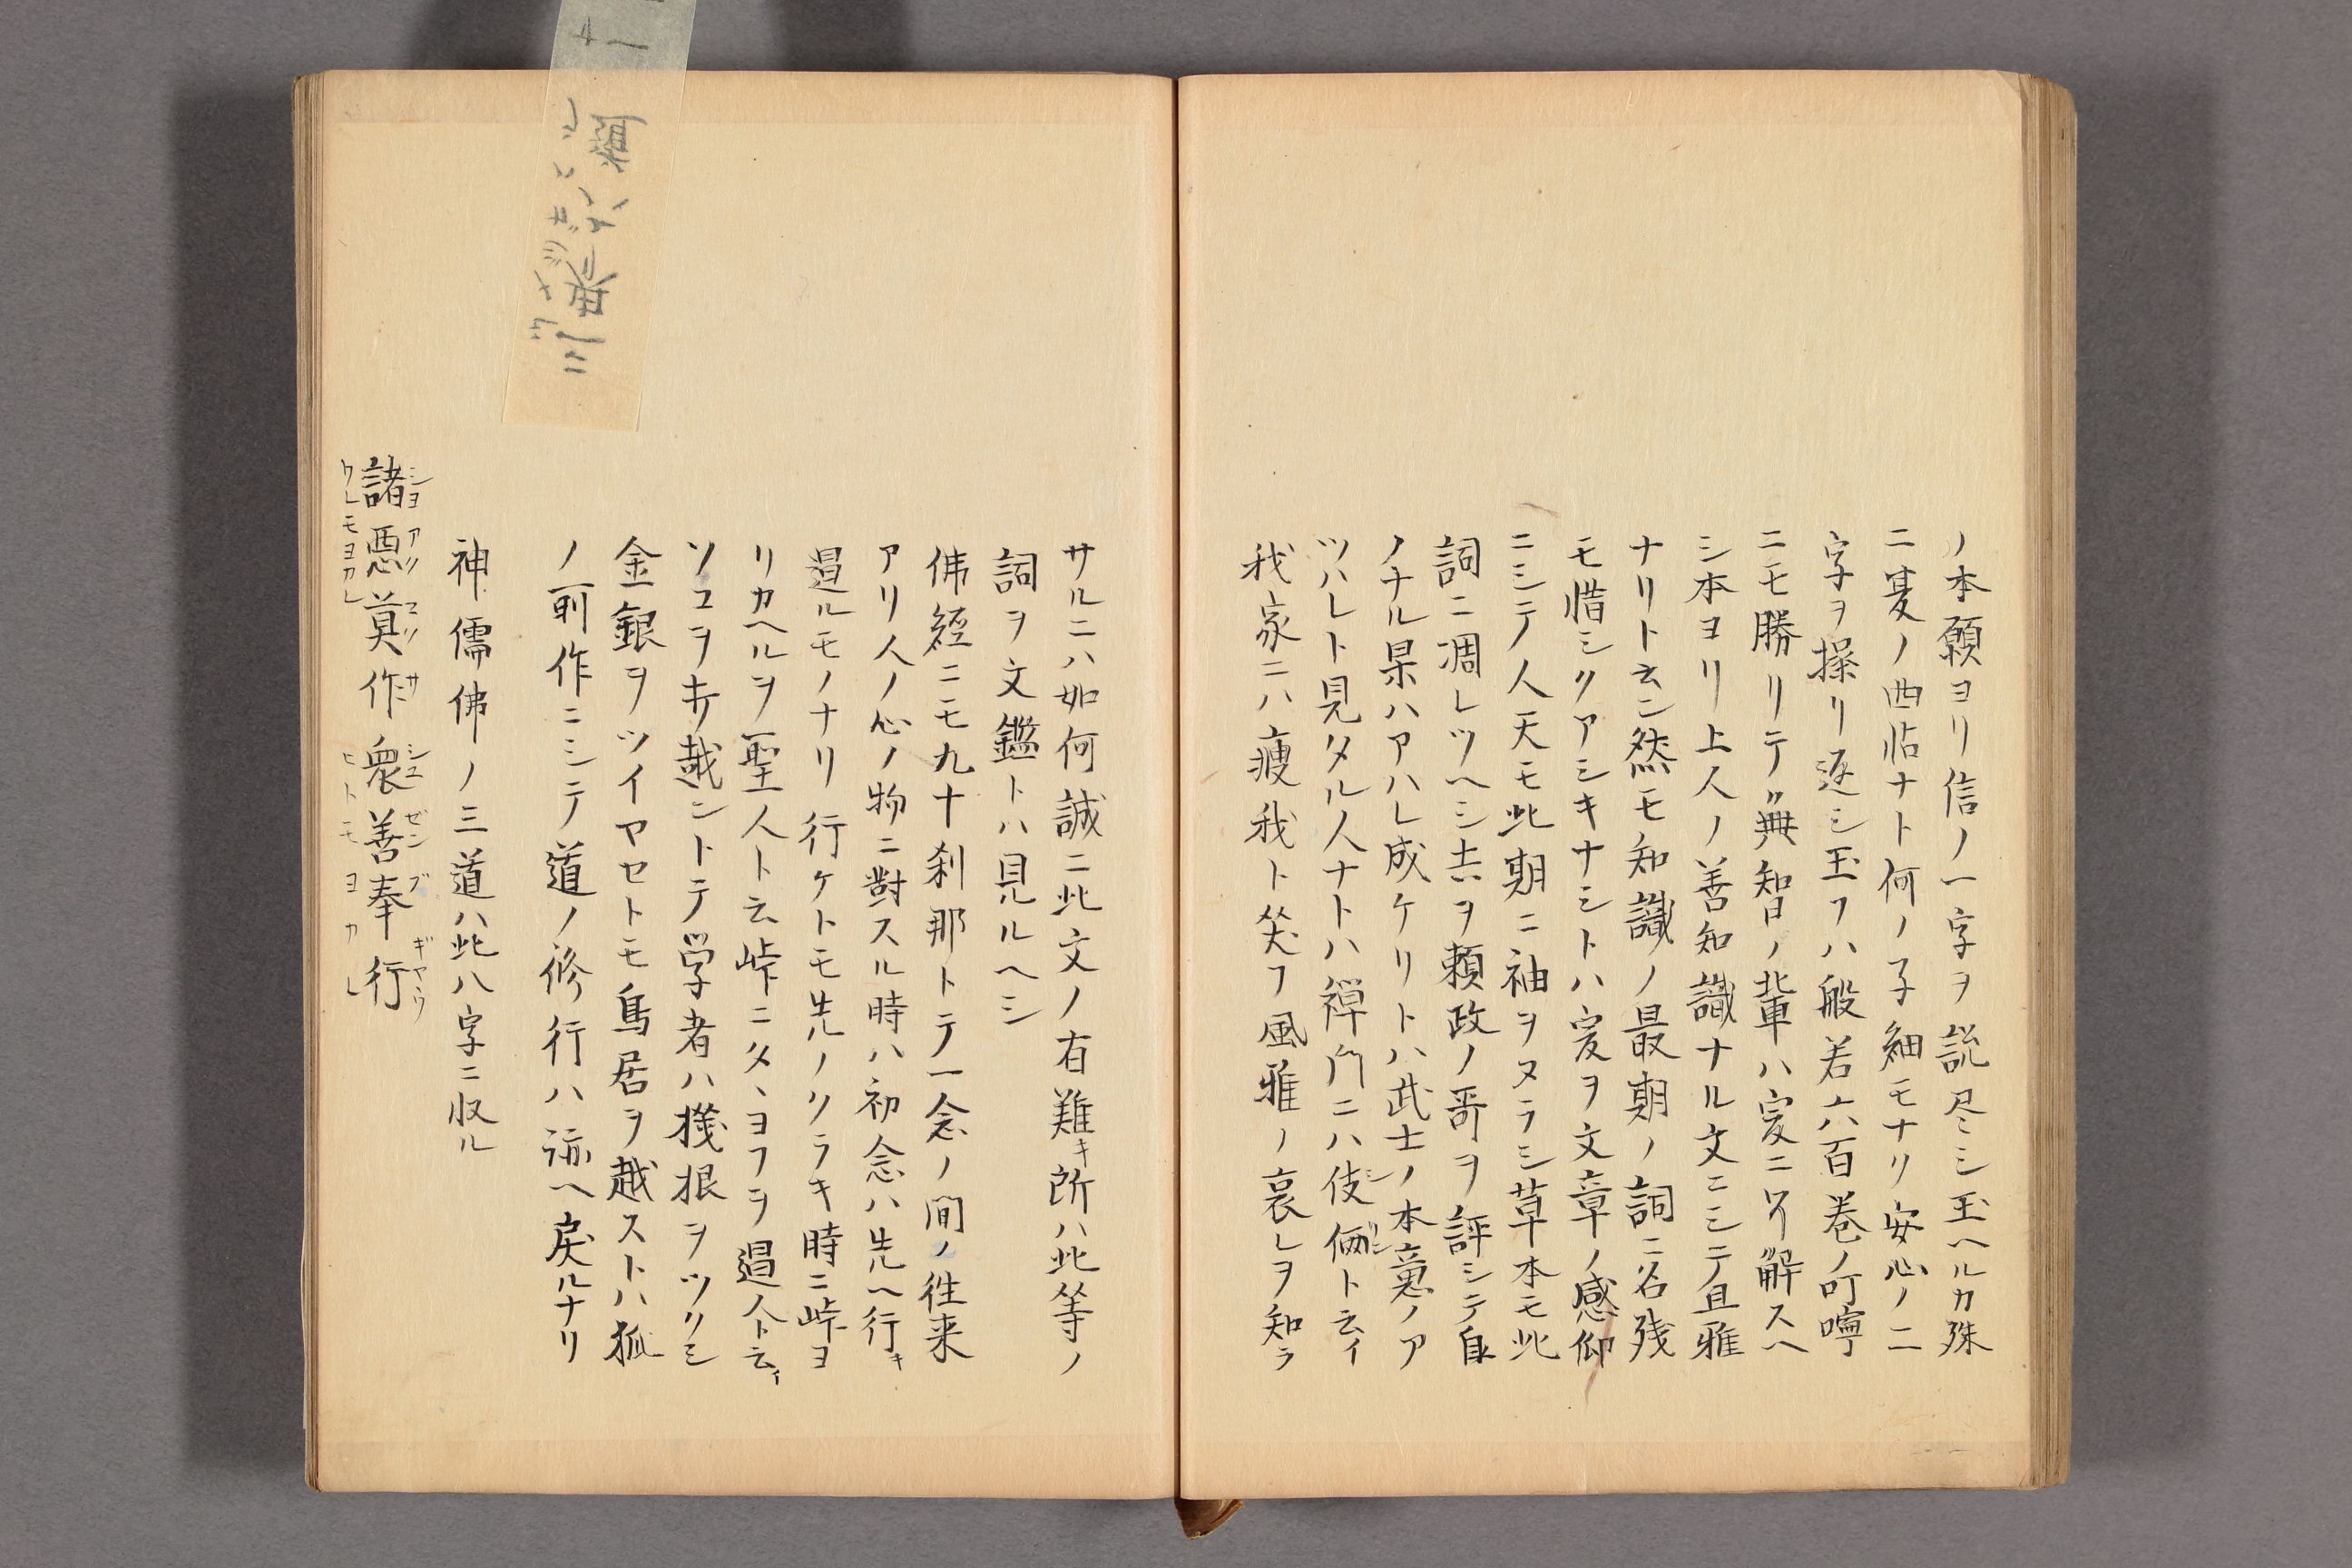 ノ本願ヨリ信ノ一字ヲ説尽シ玉ヘルカ殊
ニ夏ノ西帖ナト何ノ子細モナリ安心ノ二
字ヲ操リ返シ玉フハ般若六百巻ノ叮嚀
ニモ勝リテ無智ノ輩ハ爰ニソ解スヘ
シ本ヨリ上人ノ善知識ナル文ニシテ且雅
ナリト云ン然モ知識ノ最期ノ詞ニ名残
モ惜シクアシキナシトハ爰ヲ文章ノ感仰
ニシテ人天モ此期ニ袖ヲヌラシ草木モ此
詞ニ凋レツヘシ去ヲ頼政ノ哥ヲ評シテ自
ノナル果ハアハレ成ケリトハ武士ノ本意ノア
ツハレト見タル人ナトハ禅門ニハ伎倆ト云イ
我家ニハ痩我ト笑フ風雅ノ哀レヲ知ラ
サルニハ如何誠ニ此文ノ有難キ所ハ此等ノ
詞ヲ文鑑トハ見ルヘシ
佛經ニモ九十刹那トテ一念ノ間ノ往来
アリ人ノ心ノ物ニ對スル時ハ初念ハ先ヘ行キ
過ルモノナリ行ケトモ先ノクラキ時ニ峠ヨ
リカヘルヲ聖人ト云峠ニタヽヨフヲ過人ト云イ
ソコヲキ越ントテ学者ハ機根ヲツクシ
金銀ヲツイヤセトモ鳥居ヲ越ストハ狐
ノ前作ニシテ道ノ修行ハ跡ヘ戻ルナリ
神儒佛ノ三道ハ此八字ニ収ル
諸悪莫作衆善奉行